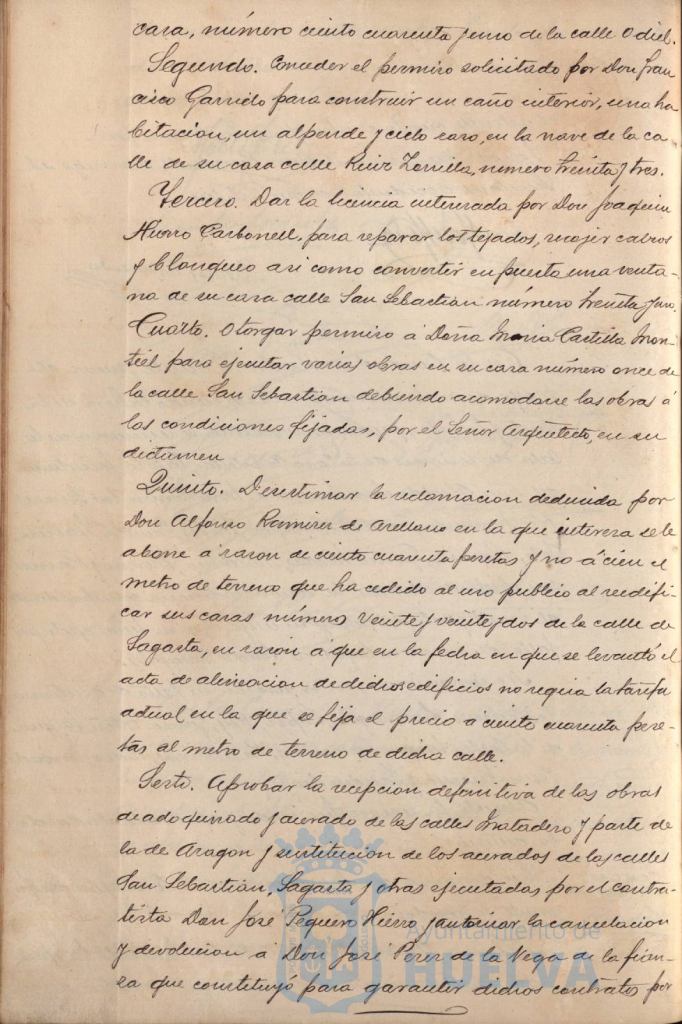 casa, número ciento cuarenta y uno de la calle Odiel.
Segundo. Conceder el permiso solicitado por Don Fran
cisco Garrido para construir un caño interior, una ha
bitacion, un alpende y cielo raso, en la nave de la ca
lle de su casa calle Ruiz Zorrilla, número treinta y tres.
Tercero. Dar la licencia interesada por Don Joaquin
Hierro Carbonell, para reparar los tejados, recojer cabios
y blanqueo asi como convertir en puerta una venta
na de su casa calle San Sebastian número treinta y uno.
Cuarto. Otorgar permiso á Doña Maria Castilla Mon
tiel para ejecutar varias obras en su casa número once de
la calle San Sebastian debiendo acomodarse las obras á
las condiciones fijadas, por el Señor Arquitecto, en su
dictamen
Quinto. Desestimar la reclamacion deducida por
Don Alfonso Ramirez de Arellano en la que interesa se le
abone á razon de ciento cuarenta pesetas y no á cien el
metro de terreno que ha cedido al uso publico al reedifi
car sus casas número veinte y veinte y dos de la calle de
Sagasta, en razon á que en la fecha en que se levantó el
acta de alineacion de dichos edificios no regia la tarifa
actual en la que se fija el precio á ciento cuarenta pese-
tas al metro de terreno de dicha calle.
Sesto. Aprobar la recepcion definitiva de las obras
de adoquinado y acerado de las calles Matadero y parte de
la de Aragon y sustitucion de los acerados de las calles
San Sebastian, Sagasta y otras ejecutadas por el contra-
tista Don José Peguero Hierro y autorizar la cancelacion
y devolucion á Don José Perez de la Vega de la fian-
za que constituyó para garantir dichos contratos por
Ayuntamiento de
HUELVA